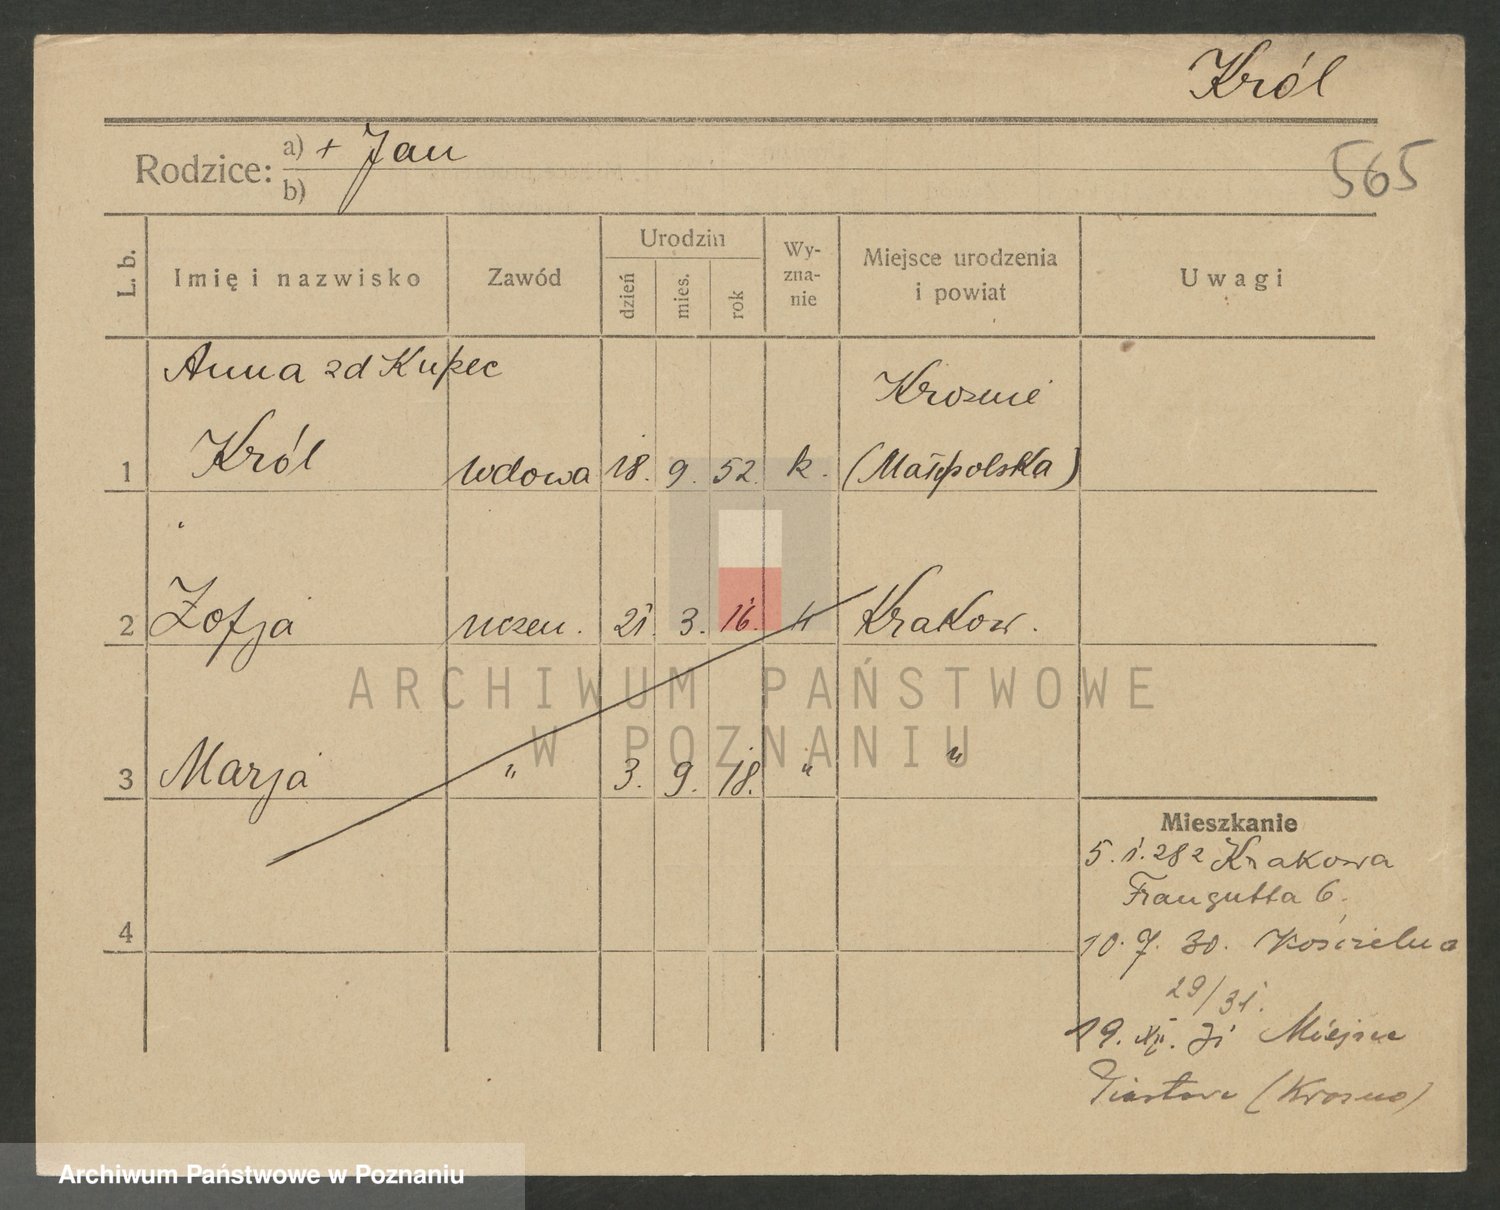 Król
565
Rodzice: a) + Jan
b)
L. b. Imię i nazwisko Zawód Urodzin dzień mies. rok Wy-zna-nie Miejsce urodzenia i powiat Uwagi
Anna zd Kupec Krosnie
1 Król wdowa 18. 9. 52. k. (Małopolska)
2 Zofja uczen. 21. 3. 16. " Krakow.
3 Marja " 3. 9. 18. " "
Mieszkanie
5. 1. 28 z Krakowa
Traugutta 6.
4
10. 7. 30. Kościelna
29/31.
19. XII. 31 Miejsce
Piastowe (Krosno)
ARCHIWUM PAŃSTWOWE
W POZNANIU
Archiwum Państwowe w Poznaniu